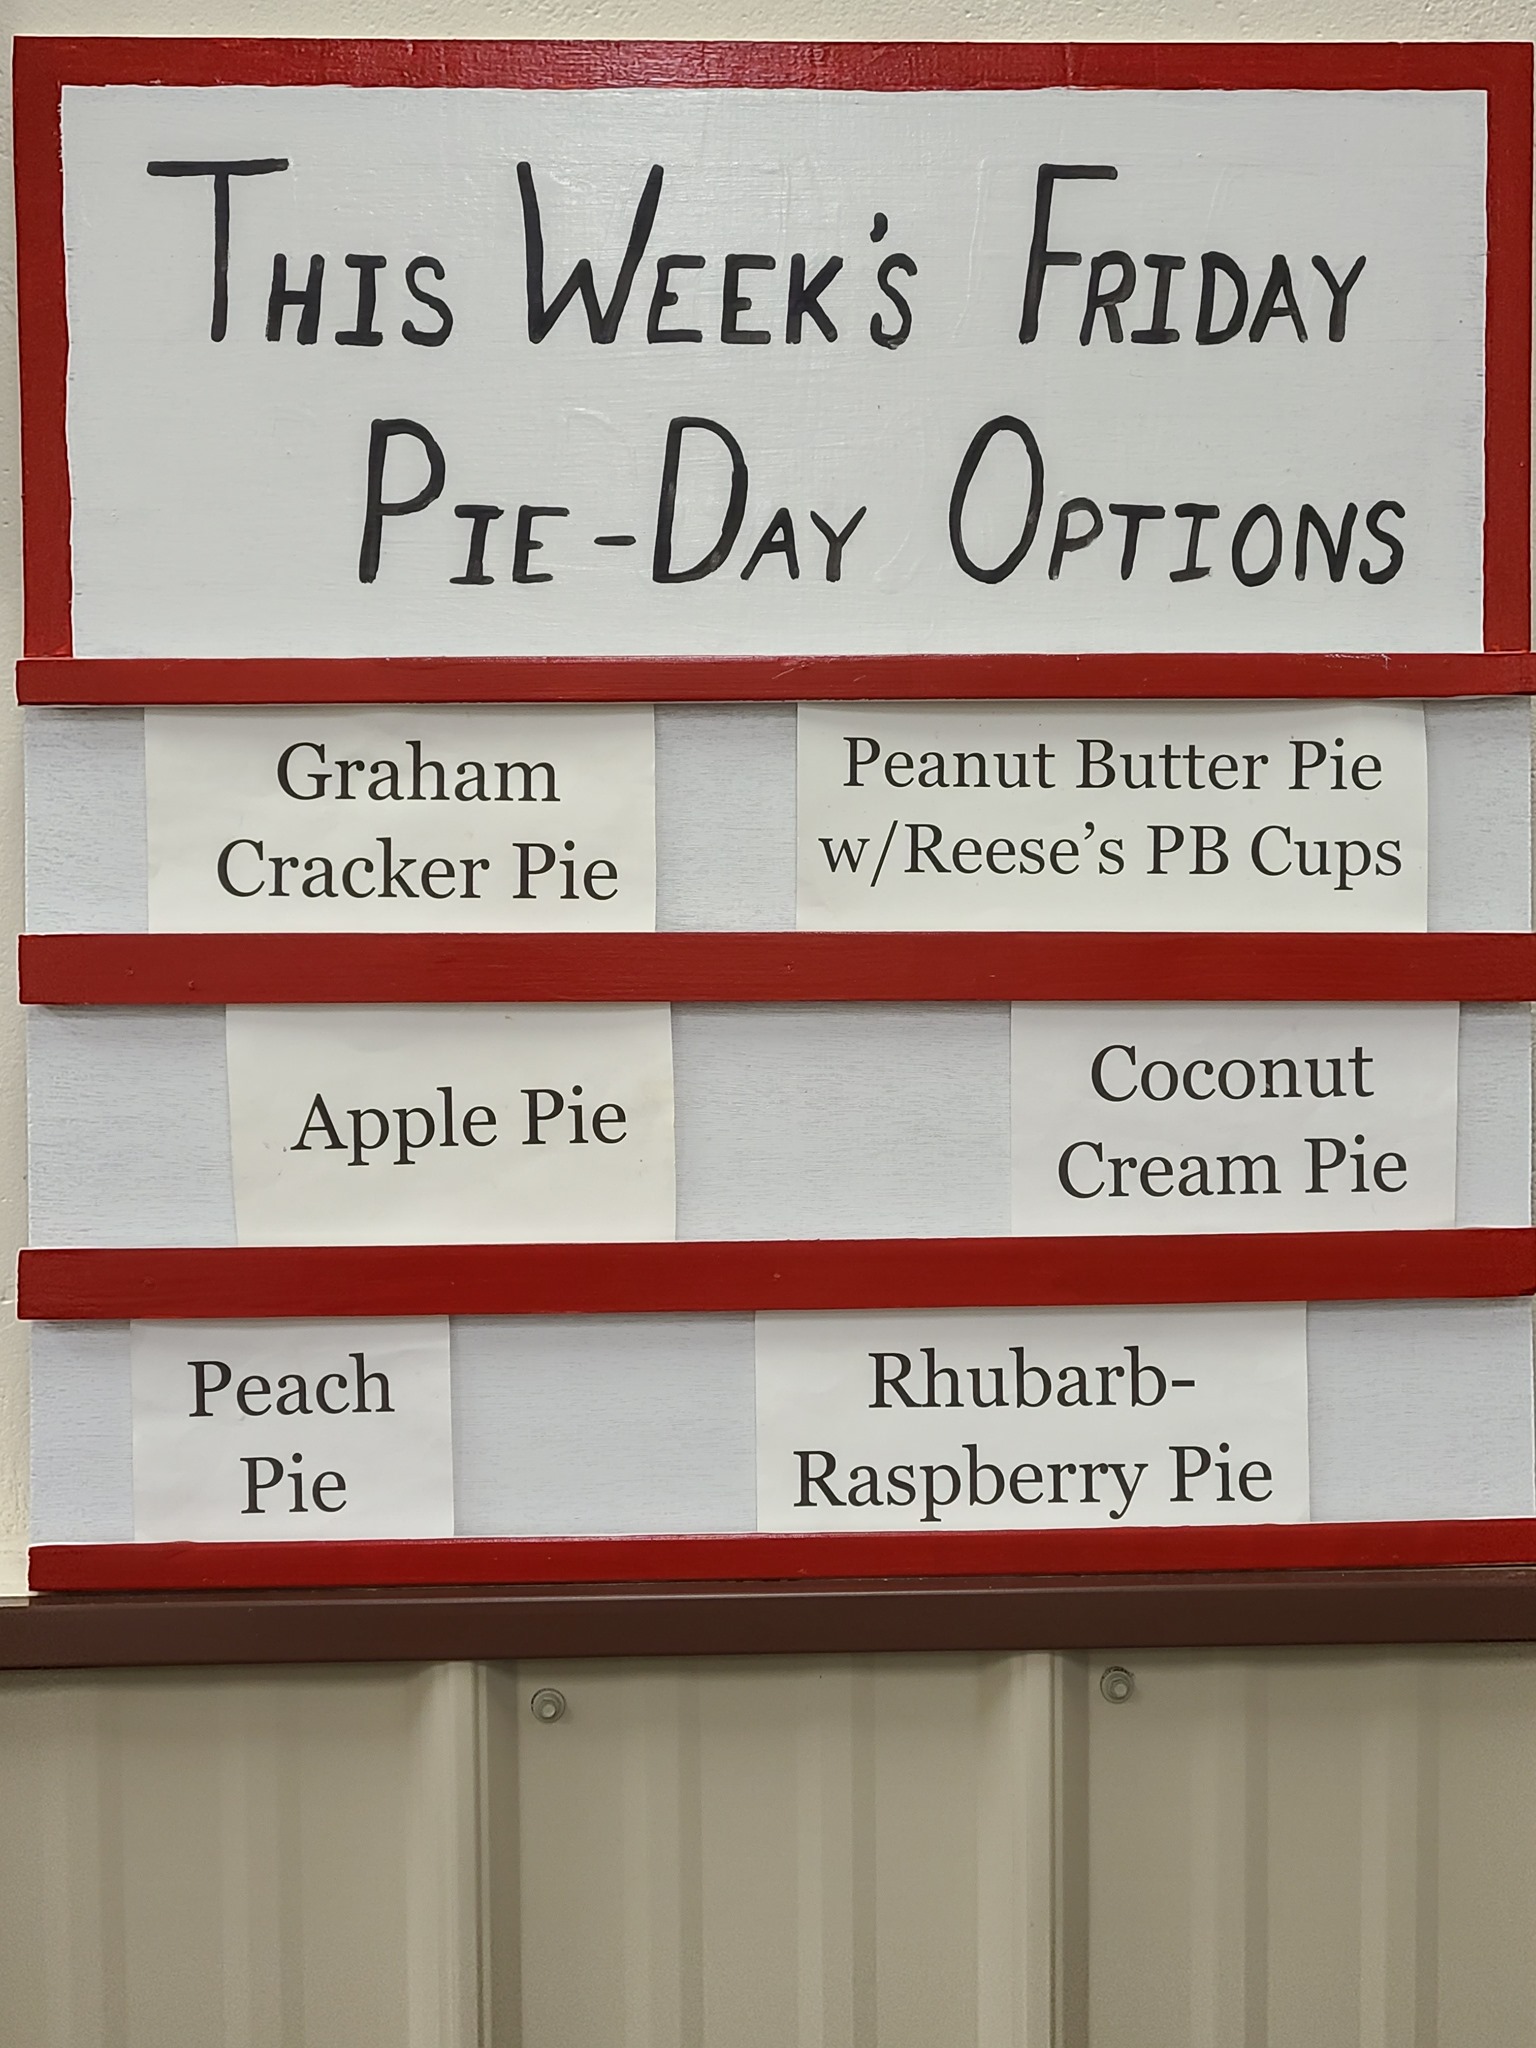 This Week's Friday
Pie-Day Options
Graham
Cracker Pie
Peanut Butter Pie
w/Reese’s PB Cups
Apple Pie
Coconut
Cream Pie
Peach
Pie
Rhubarb-
Raspberry Pie